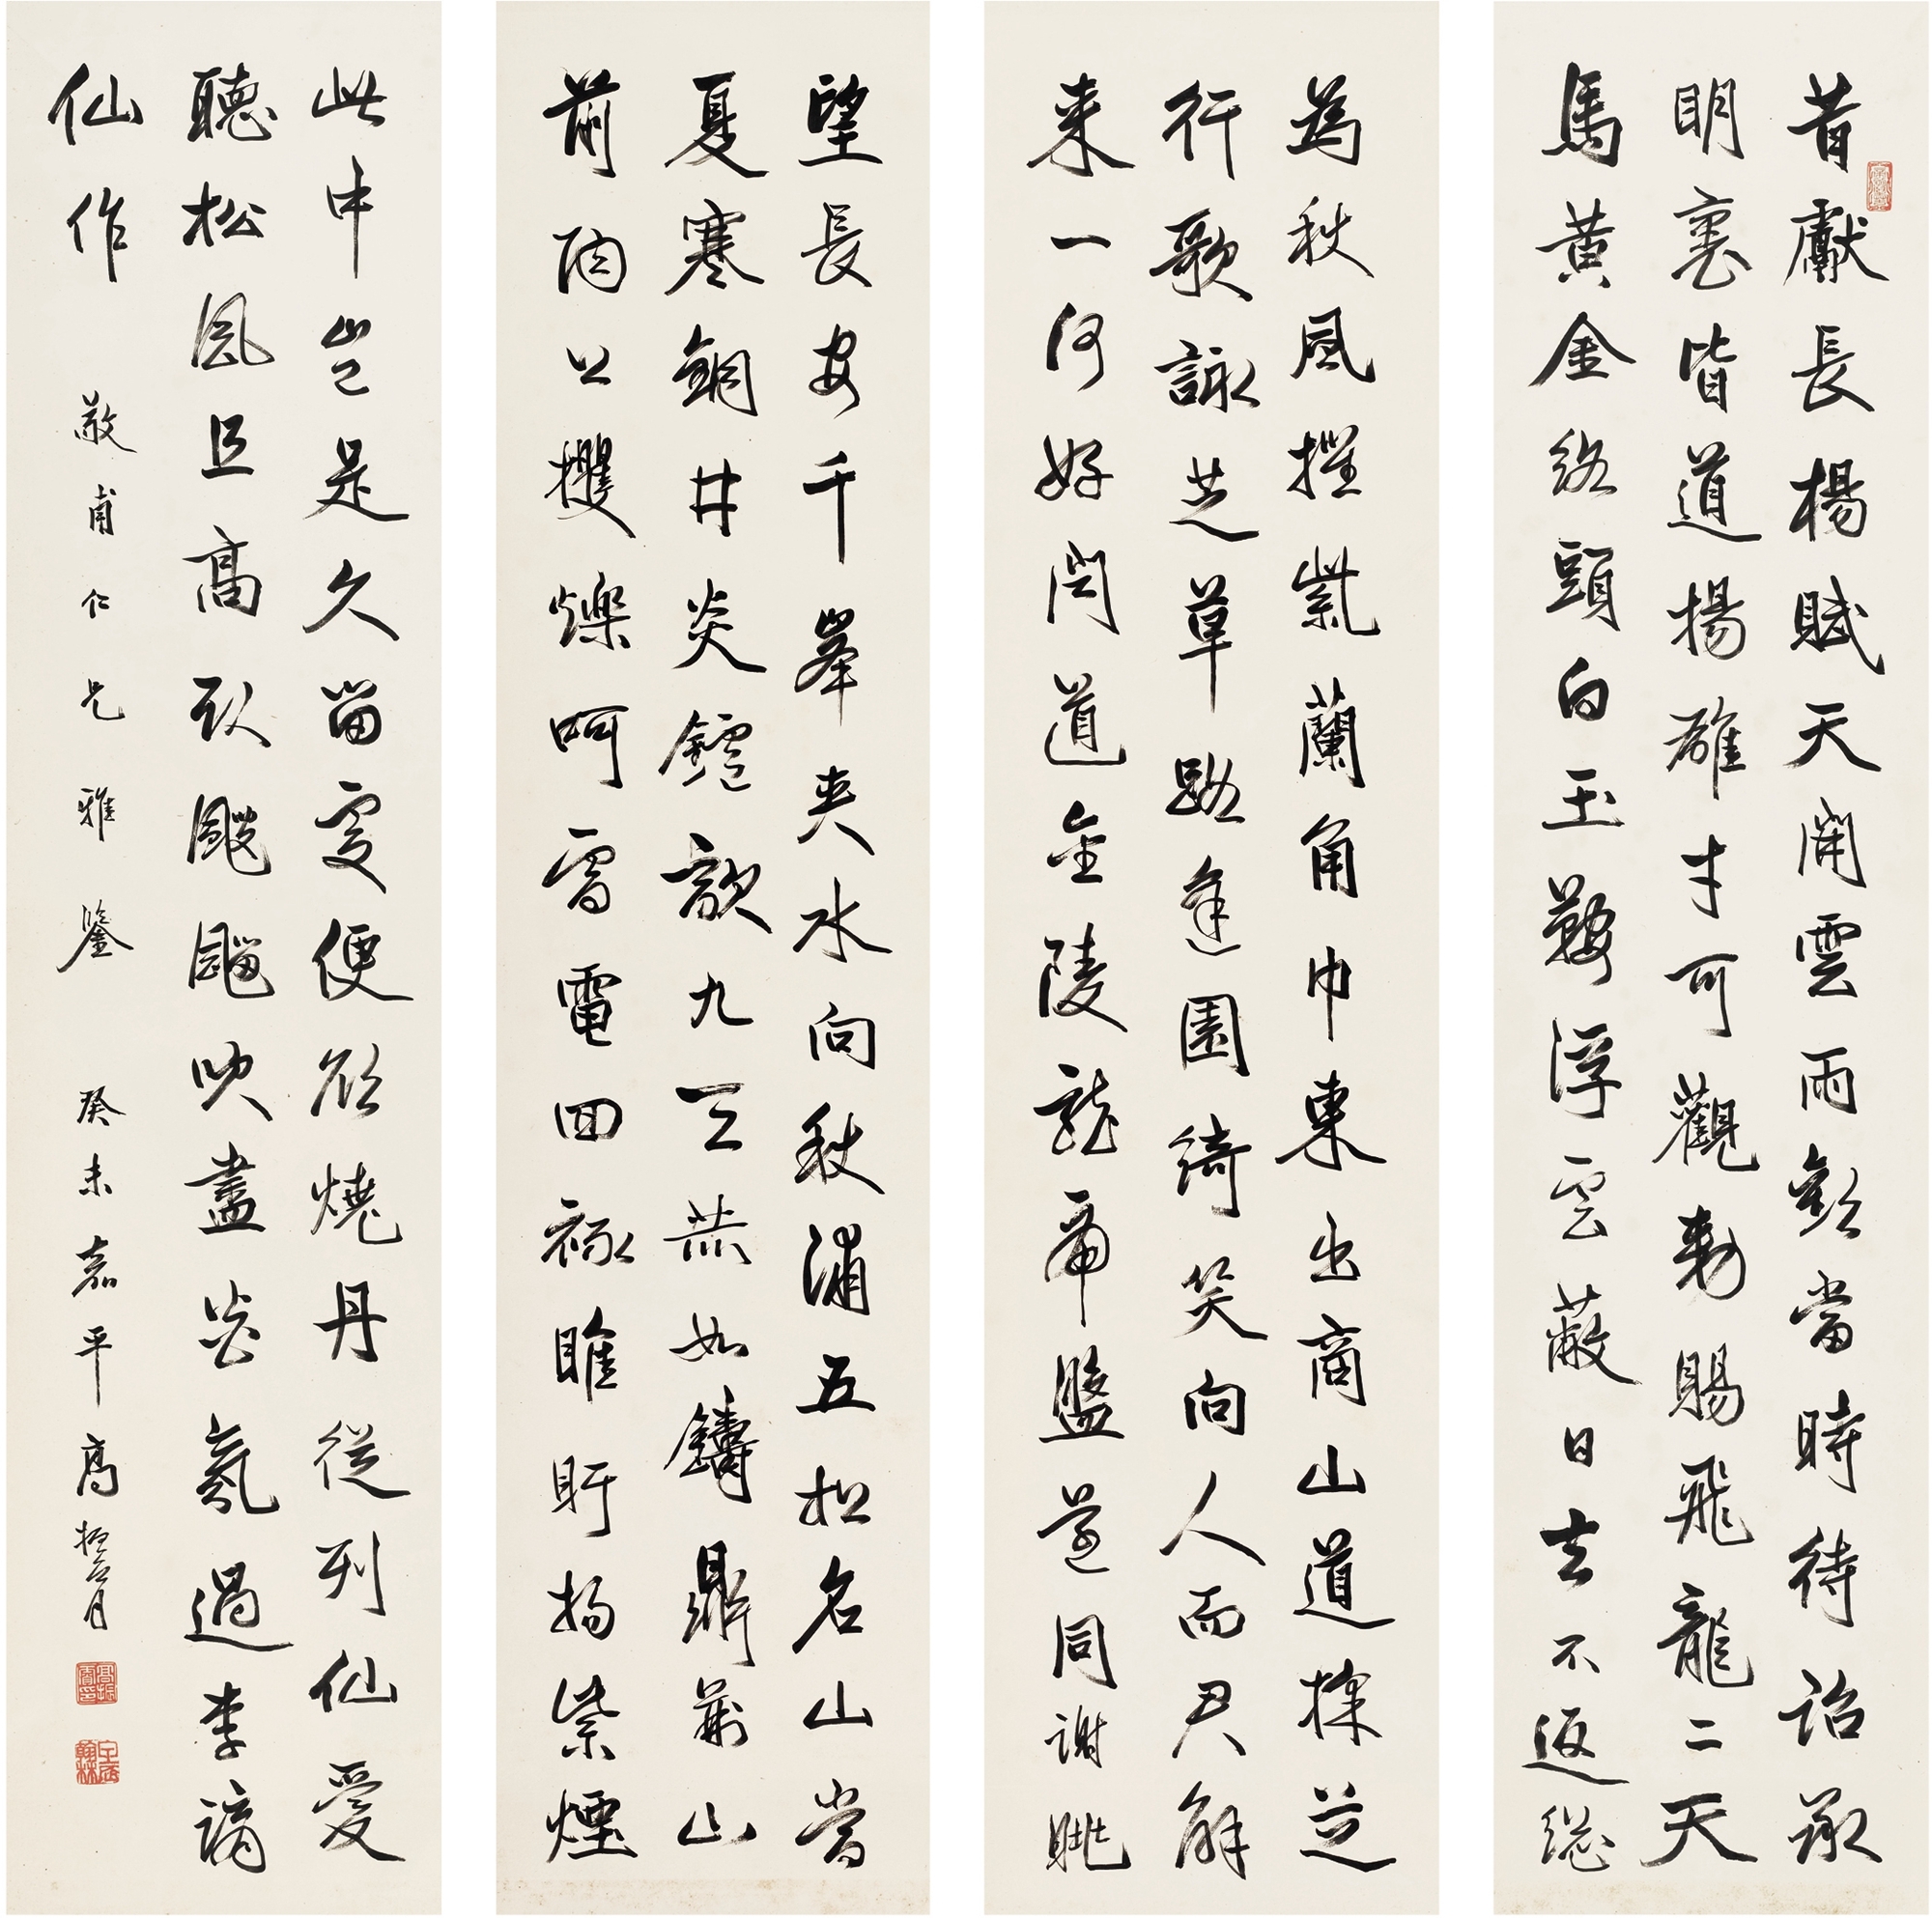 昔獻長楊賦天開雲雨歡當時待詔承
明裏皆道揚雄才可觀勅賜飛龍二天
馬黃金絡頭白玉鞍浮雲蔽日去不返總
為秋風摧紫蘭角巾東出商山道採芝
行歌詠芝草路逢園綺笑向人而君解
來一何好聞道金陵龍虎盤還同謝朓
望長安千峯夾水向秋浦五松名山當
夏寒銅井炎鑪歊九天赫如鑄鼎荊山
前陶公攫爍呵雷電回祿睢盱揚紫煙
此中豈是久留處便欲燒丹從列仙愛
聽松風且高臥颼飀吹盡炎氛過李謫
仙作 敬甫仁兄雅鑒 癸未嘉平高振霄
高振霄印